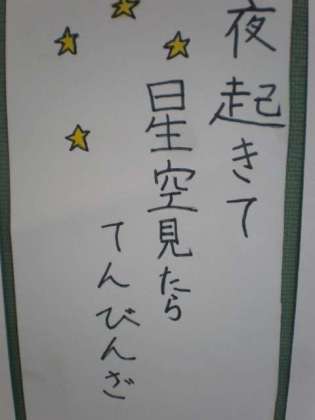 夜起きて
星空見たら
てんびんざ